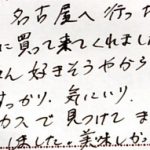 名古屋へ行った
に買って来てくれまし
ん好きそうやから
すっかり、気にいり、
カスで見つけてま
しました。美味しかっ